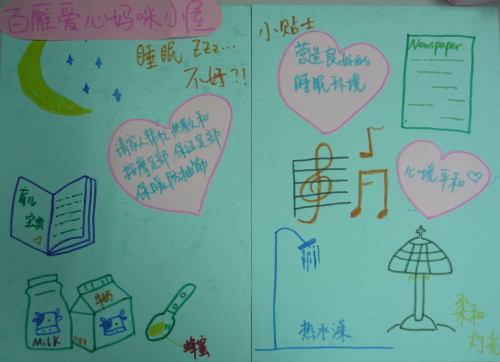 百雁爱心妈咪小屋
睡眠 Zzz...
不好?!
请家人帮忙热敷和
按摩足部 保证足部
保暖防抽筋
育儿
宝典
MILK
牛奶
蜂蜜
小贴士
营造良好的
睡眠环境
Newspaper
心境平和♡
热水澡
柔和
灯光